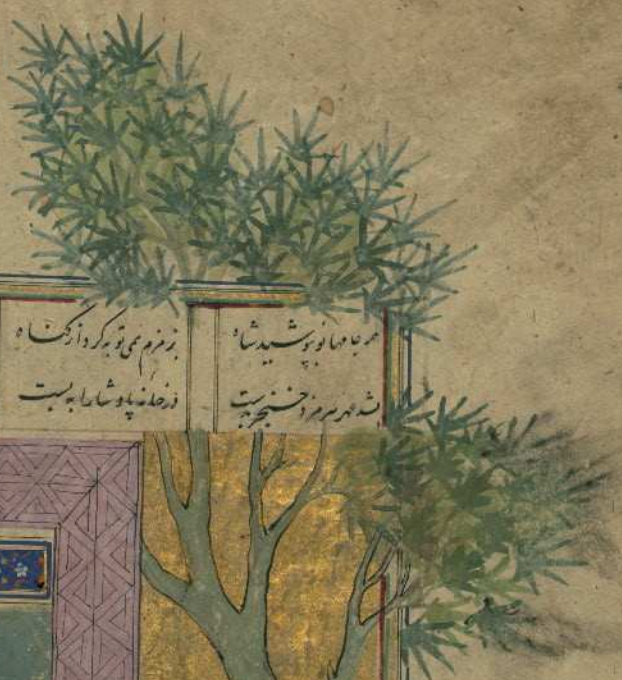 همه جامها نو بپوشید شاه بزمزم همی توبه کرد از گناه
بشد مهر هرمزد خنجر بدست در خانه پادشا را ببست